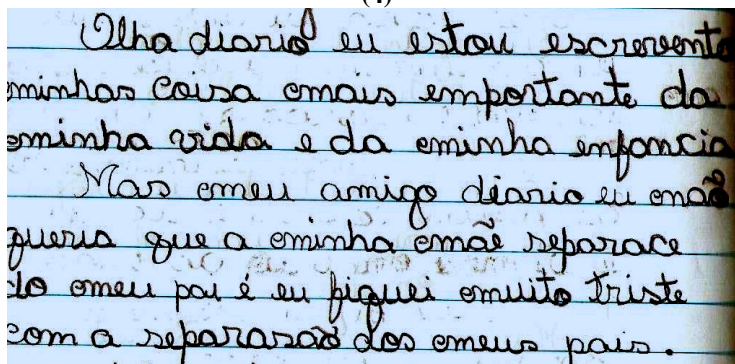 Olha diario eu estou escrevento
minhas coisa mais emportante da
minha vida e da minha enfancia
Mas meu amigo diario eu não
queria que a minha mãe separace
do meu pai é eu fiquei muito triste
com a separasão dos meus pais.